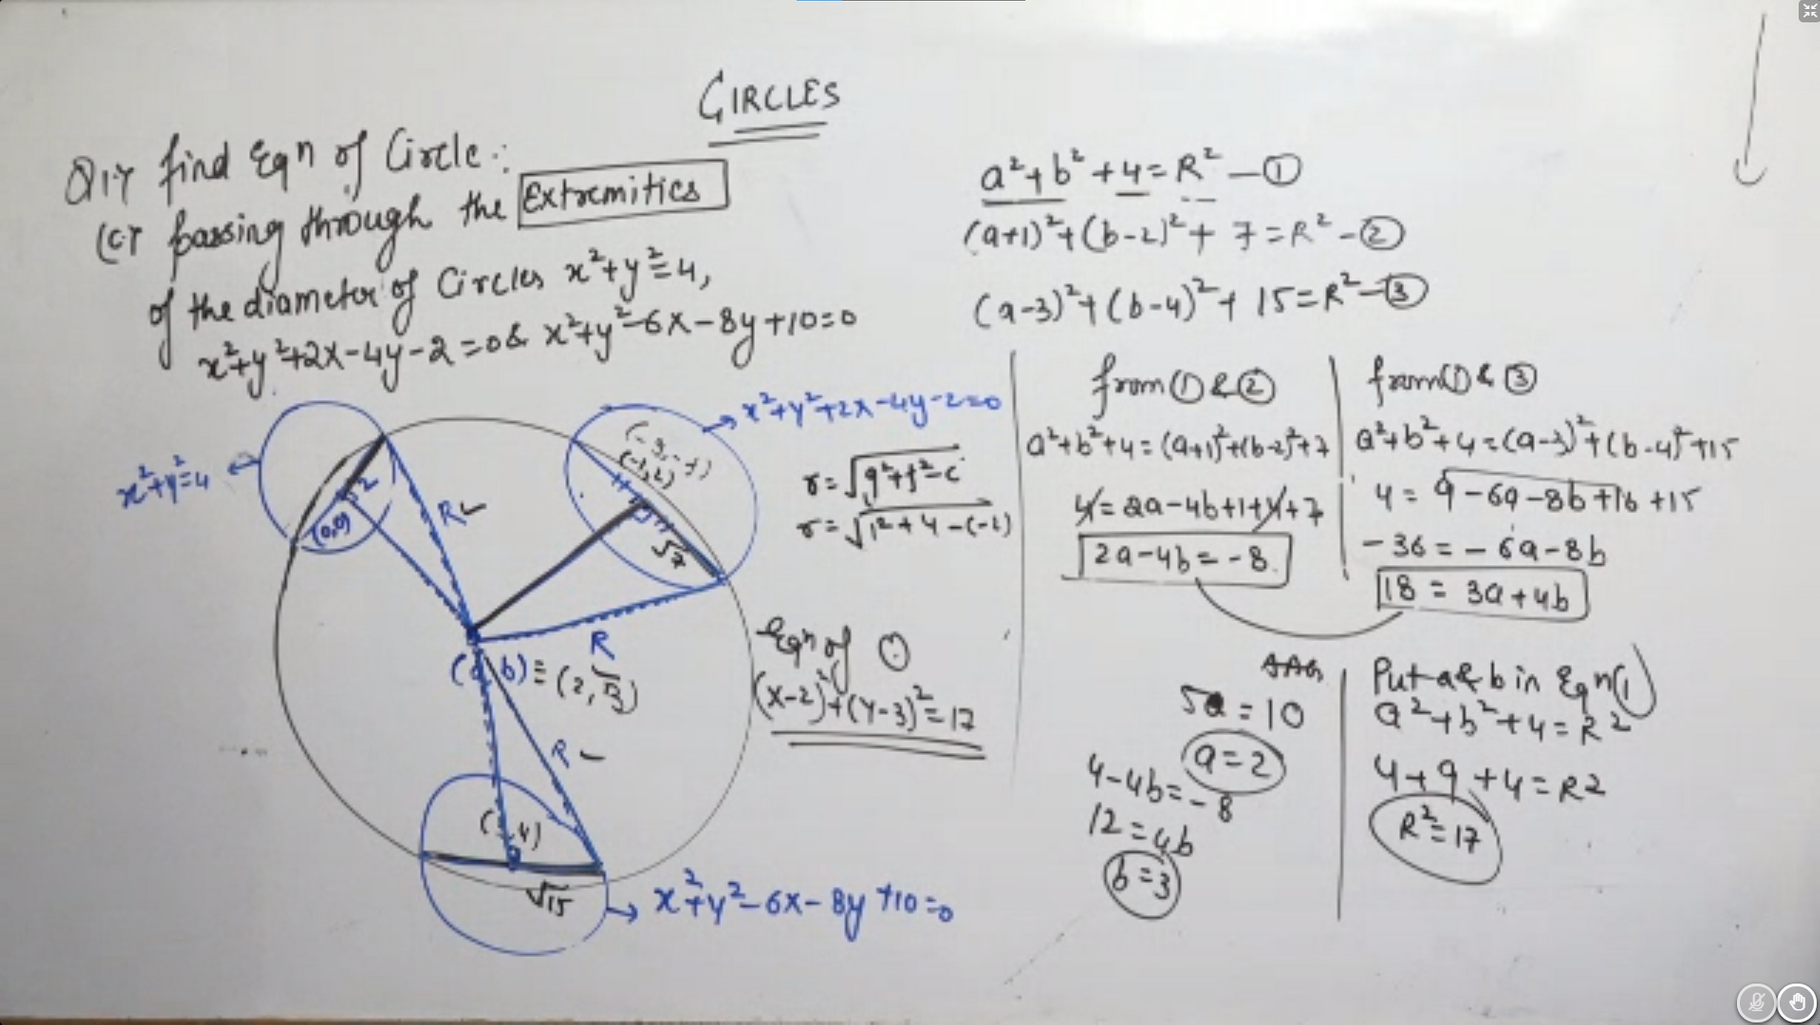 CIRCLES
Q1. find Eqn of Circle:
(c) passing through the Extremitics
of the diameter of Circles x²+y²=4,
x²+y²+2x-4y-2=0 & x²+y²-6x-8y+10=0
x²+y²=4
(0,0)
2
R
x²+y²+2x-4y-2=0
(-1,2)
√7
R
(a,b)≡(2,3)
R
(3,4)
√15
x²+y²-6x-8y+10=0
r=√g²+f²-c
r=√1²+4-(-2)
Eqn of ⊙
(x-2)²+(y-3)²=17
a²+b²+4=R² —①
(a+1)²+(b-2)²+7=R² -②
(a-3)²+(b-4)²+15=R² -③
from ① & ②
a²+b²+4=(a+1)²+(b-2)²+7
4=2a-4b+1+4+7
2a-4b=-8
5a=10
a=2
4-4b=-8
12=4b
b=3
from ① & ③
a²+b²+4=(a-3)²+(b-4)²+15
4=9-6a-8b+16+15
-36=-6a-8b
18=3a+4b
Put a & b in Eqn(1)
a²+b²+4=R²
4+9+4=R2
R²=17